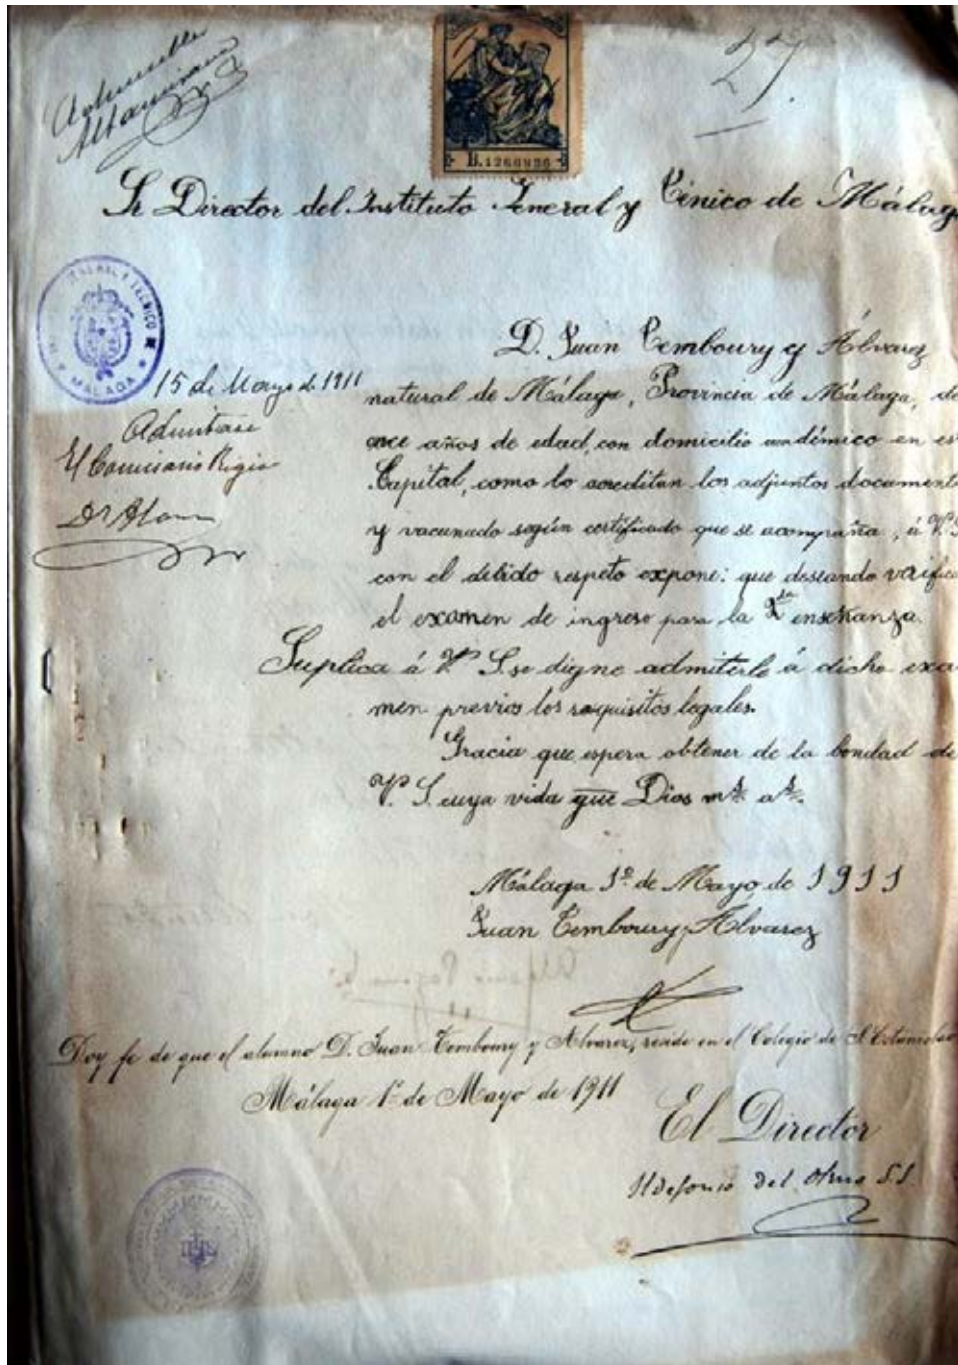 Admisible
Altamirano
27.
B.1260936
Sr Director del Instituto General y Técnico de Málaga
GENERAL Y TECNICO
MALAGA
15 de Mayo de 1911
Admítase
El Comisario Regio
D. Juan Temboury y Álvarez
natural de Málaga, Provincia de Málaga, de
once años de edad, con domicilio académico en es
Capital, como lo acreditan los adjuntos document
y vacunado según certificado que se acompaña, á V. S
con el debido respeto expone: que deseando verifica
el examen de ingreso para la 2da enseñanza.
Suplica á V. S. se digne admitirle á dicho exa
men previos los requisitos legales.
Gracia que espera obtener de la bondad de
V. S. cuya vida gue Dios ms as.
Málaga 1º de Mayo de 1911
Juan Temboury y Álvarez
Doy fe de que el alumno D. Juan Temboury y Alvarez, reside en el Colegio de S. Estanislao
Málaga 1º de Mayo de 1911
El Director
Ildefonso del Olmo S.J.
IHS